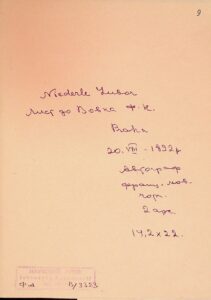 9
Niederle Lubor
лист до Вовка Ф. К.
Praha
20. VIII - 1892 р
Автограф
франц. мов.
чорн.
2 арк.
17,2 x 22.
Ф №
В/3353